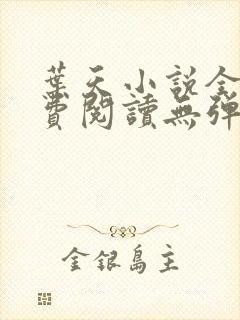 葉天小說全
費閱讀無彈
金銀島主